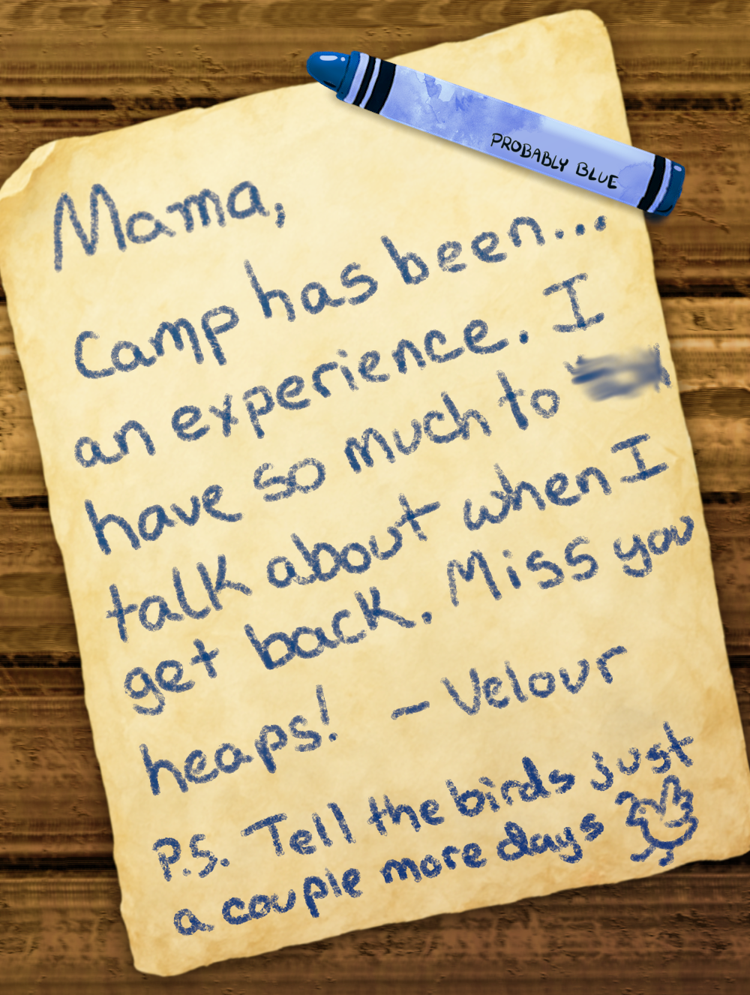 PROBABLY BLUE
Mama,
Camp has been...
an experience. I
have so much to
talk about when I
get back. Miss you
heaps! - Velour
P.S. Tell the birds just
a couple more days